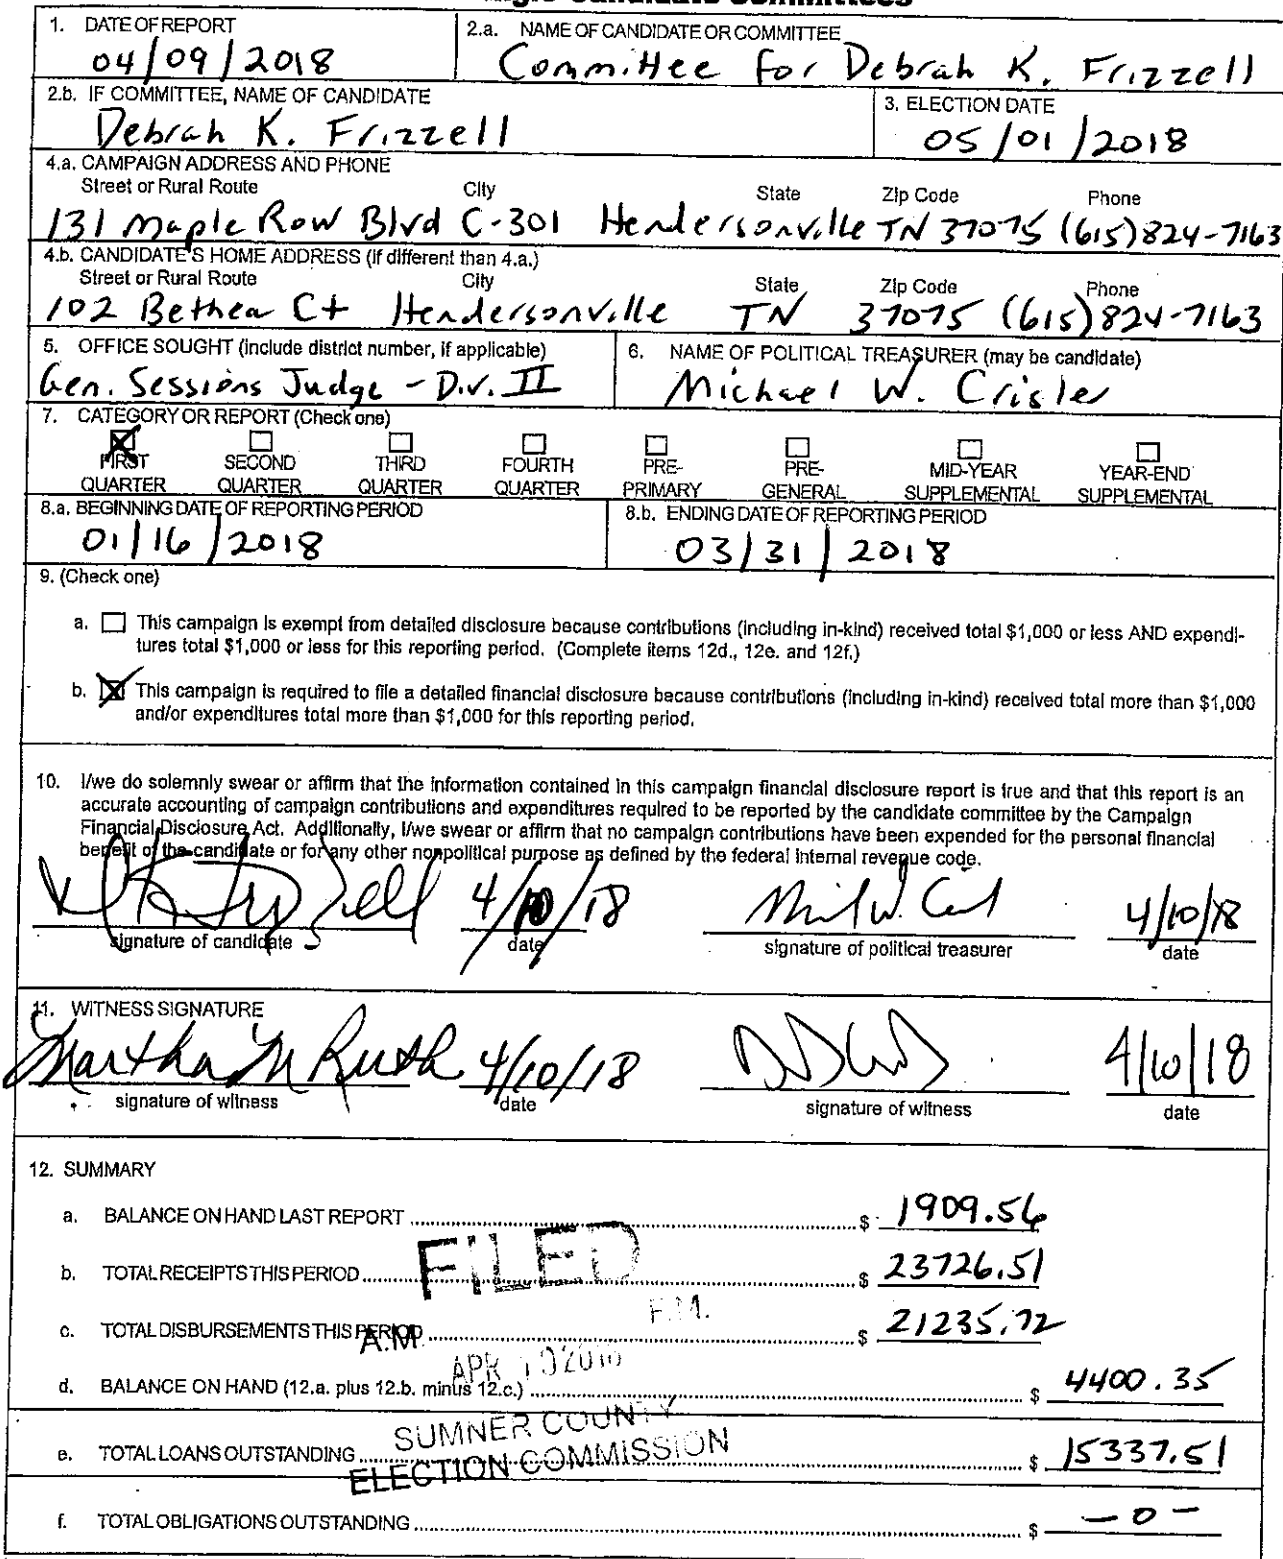 1. DATE OF REPORT
04/09/2018
2.a. NAME OF CANDIDATE OR COMMITTEE
Committee for Debrah K. Frizzell
2.b. IF COMMITTEE, NAME OF CANDIDATE
Debrah K. Frizzell
3. ELECTION DATE
05/01/2018
4.a. CAMPAIGN ADDRESS AND PHONE
Street or Rural Route City State Zip Code Phone
131 Maple Row Blvd C-301 Hendersonville TN 37075 (615)824-7163
4.b. CANDIDATE'S HOME ADDRESS (if different than 4.a.)
Street or Rural Route City State Zip Code Phone
102 Bethea Ct Hendersonville TN 37075 (615)824-7163
5. OFFICE SOUGHT (include district number, if applicable)
Gen. Sessions Judge - Div. II
6. NAME OF POLITICAL TREASURER (may be candidate)
Michael W. Crisler
7. CATEGORY OR REPORT (Check one)
FIRST QUARTER
SECOND QUARTER
THIRD QUARTER
FOURTH QUARTER
PRE-PRIMARY
PRE-GENERAL
MID-YEAR SUPPLEMENTAL
YEAR-END SUPPLEMENTAL
8.a. BEGINNING DATE OF REPORTING PERIOD
01/16/2018
8.b. ENDING DATE OF REPORTING PERIOD
03/31/2018
9. (Check one)
a. This campaign is exempt from detailed disclosure because contributions (including in-kind) received total $1,000 or less AND expendi-
tures total $1,000 or less for this reporting period. (Complete items 12d., 12e. and 12f.)
b. This campaign is required to file a detailed financial disclosure because contributions (including in-kind) received total more than $1,000
and/or expenditures total more than $1,000 for this reporting period.
10. I/we do solemnly swear or affirm that the information contained in this campaign financial disclosure report is true and that this report is an
accurate accounting of campaign contributions and expenditures required to be reported by the candidate committee by the Campaign
Financial Disclosure Act. Additionally, I/we swear or affirm that no campaign contributions have been expended for the personal financial
benefit of the candidate or for any other nonpolitical purpose as defined by the federal internal revenue code.
4/10/18 4/10/18
signature of candidate date signature of political treasurer date
11. WITNESS SIGNATURE
Martha M Ruth 4/10/18 4/10/18
signature of witness date signature of witness date
12. SUMMARY
a. BALANCE ON HAND LAST REPORT $ 1909.56
b. TOTAL RECEIPTS THIS PERIOD $ 23726.51
c. TOTAL DISBURSEMENTS THIS PERIOD $ 21235.72
d. BALANCE ON HAND (12.a. plus 12.b. minus 12.c.) $ 4400.35
e. TOTAL LOANS OUTSTANDING $ 15337.51
f. TOTAL OBLIGATIONS OUTSTANDING $ -0-
FILED
A.M. P.M.
APR 10 2018
SUMNER COUNTY
ELECTION COMMISSION